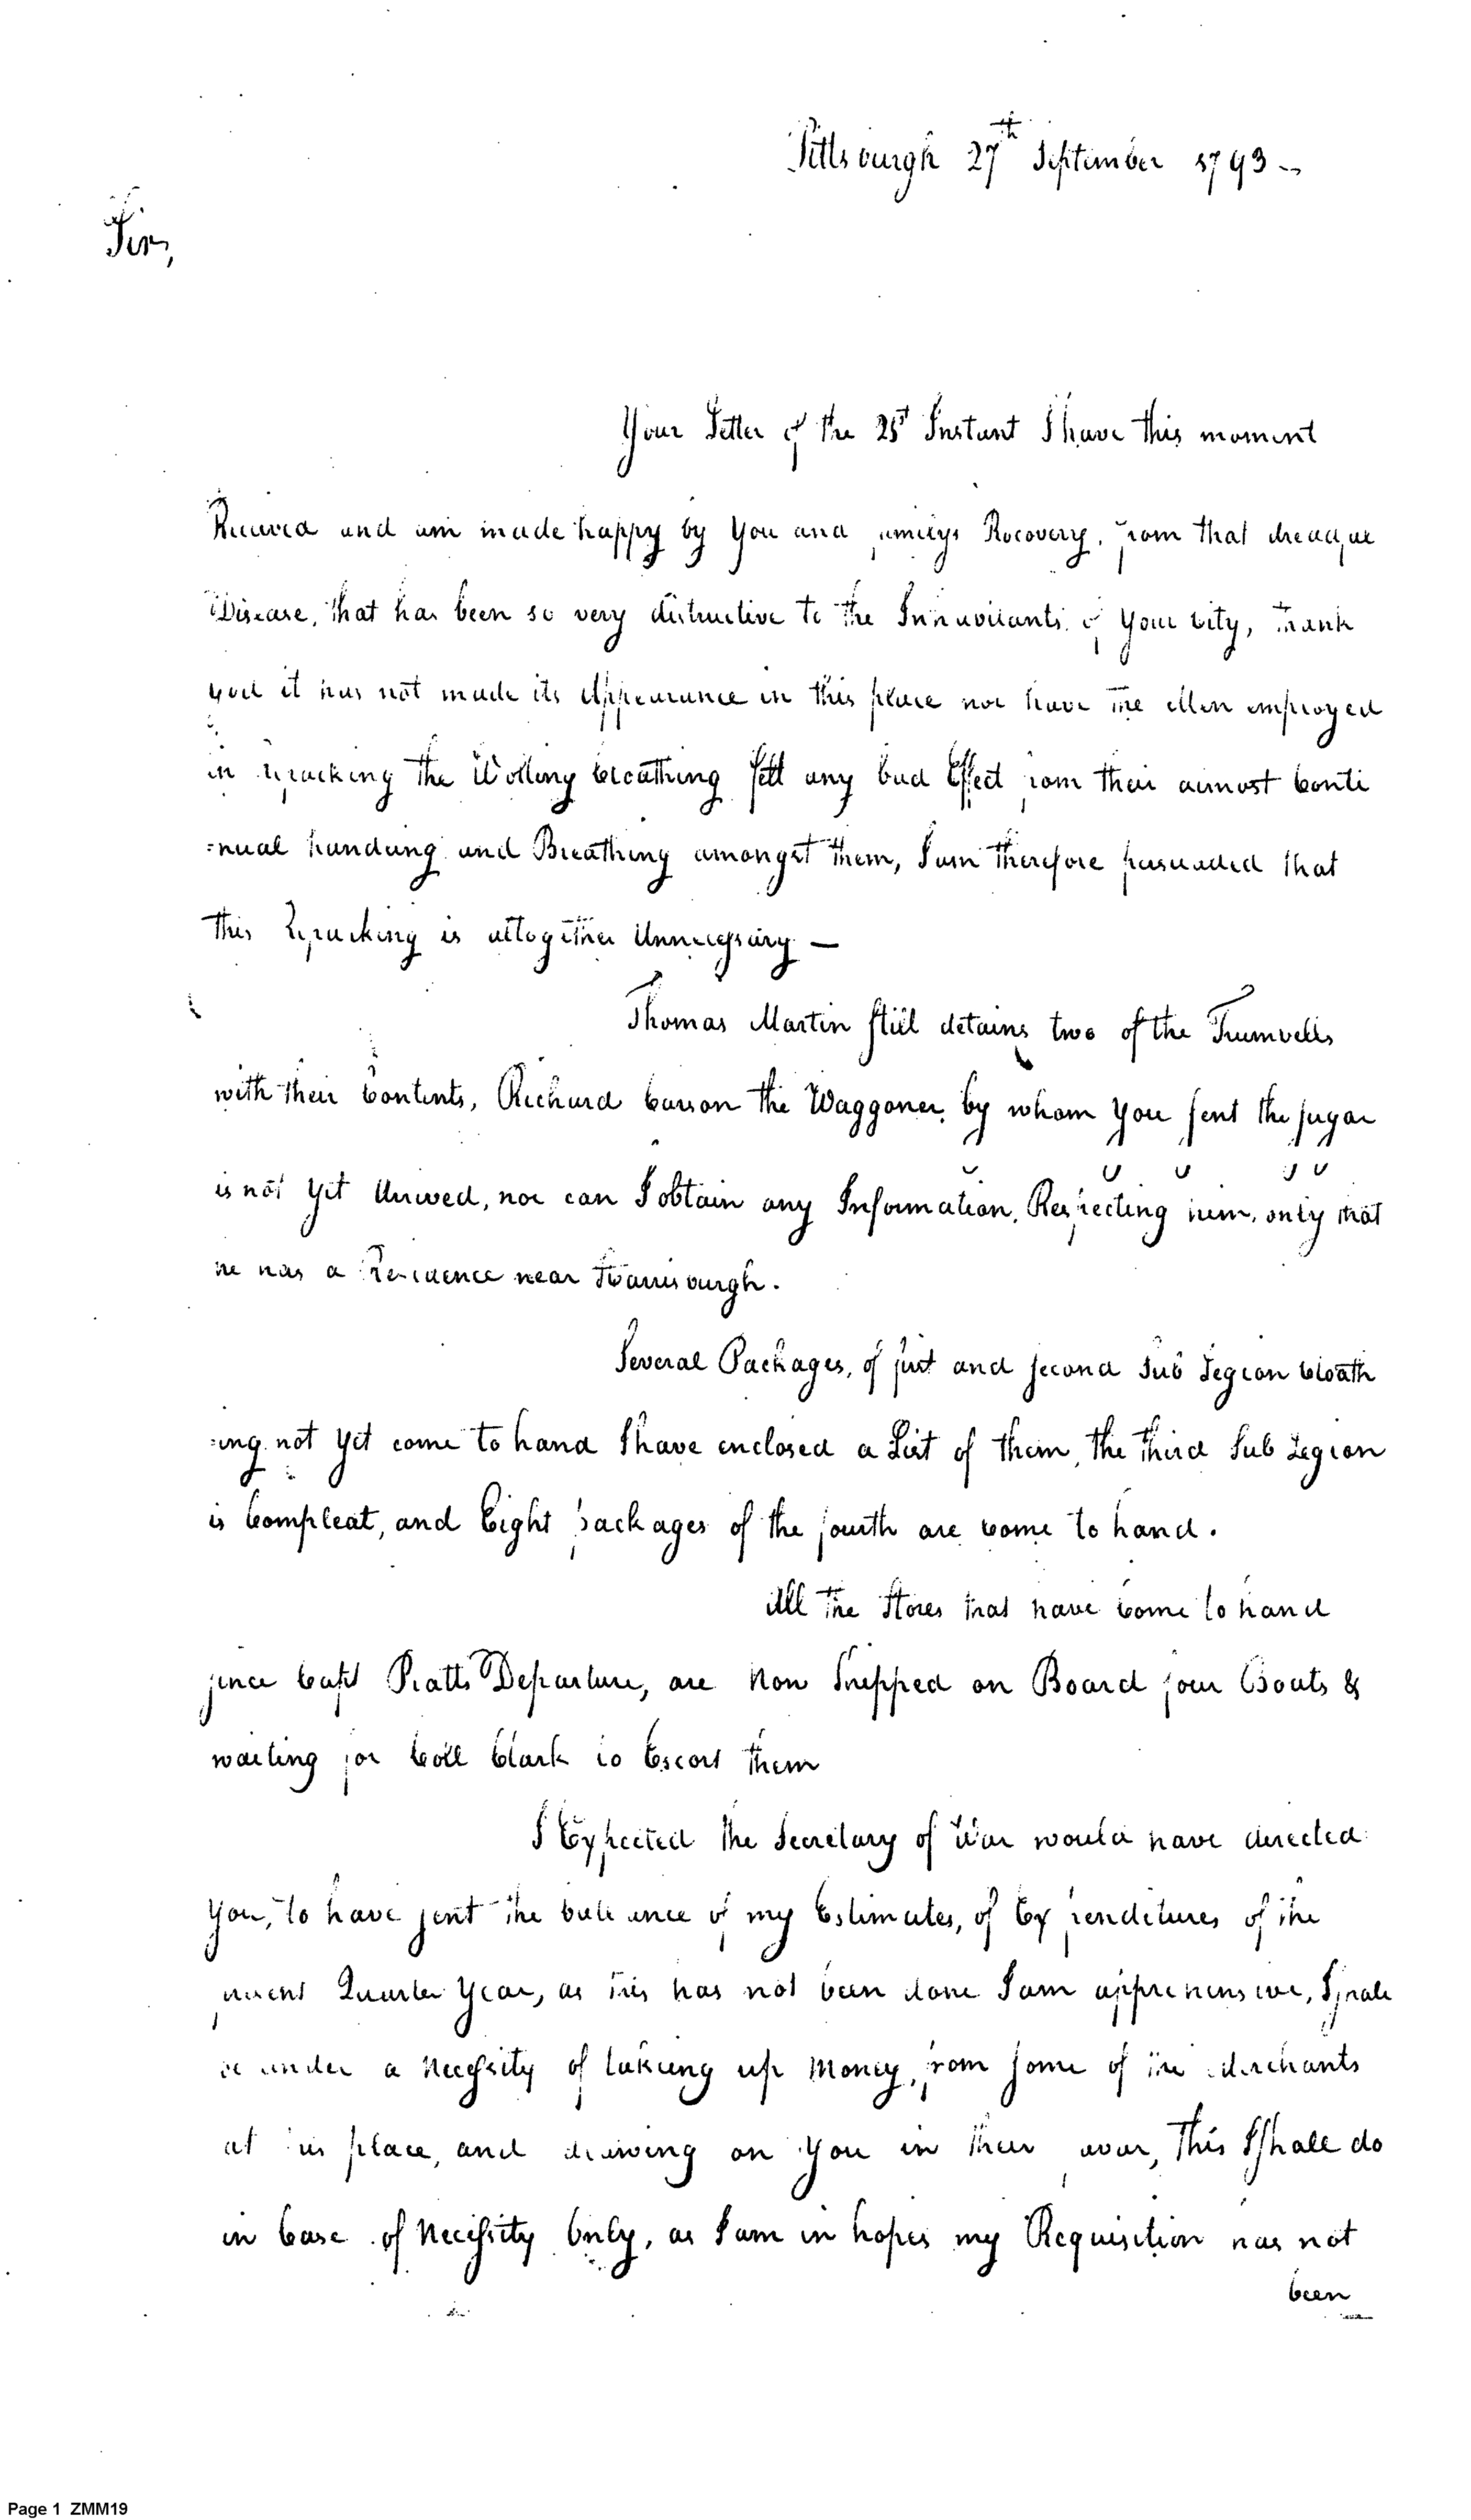 Pittsburgh 27th September 1793 —
Sir,
Your Letter of the 25t Instant I have this moment
Received and am made happy by you and familys Recovery, from that dreadful
Disease, that has been so very distructive to the Inhabitants of your City, thank
god it has not made its Appearance in this place nor have the Men employed
in repacking the Wolling Cloathing felt any bad Effect from their almost Conti
=nual handling and Breathing amongst them, I am therefore persuaded that
this Repacking is altogether Unnecessary —
Thomas Martin still detains two of the Trumvells
with their Contents, Richard Carson the Waggoner, by whom you sent the sugar
is not yet Arrived, nor can I obtain any Information, Respecting him, only that
he has a Residence near Harrisburgh.
Several Packages, of first and second Sub Legion Cloath
=ing not yet come to hand I have enclosed a List of them, the third Sub Legion
is Compleat, and Eight packages of the fourth are come to hand.
All the Stores that have Come to hand
since Capt Pratts Departure, are Now Shipped on Board four Boats &
waiting for Coll Clark to Escort them
I Expected the Secretary of War would have directed
you, to have sent the ballance of my Estimates, of Expenditures of the
present Quarter Year, as this has not been done I am apprehensive, I shall
be under a Necessity of takeing up Money, from some of the Merchants
at this place, and drawing on you in their favour, This I shall do
in Case of Necessity Only, as I am in hopes my Requisition has not
been
Page 1 ZMM19